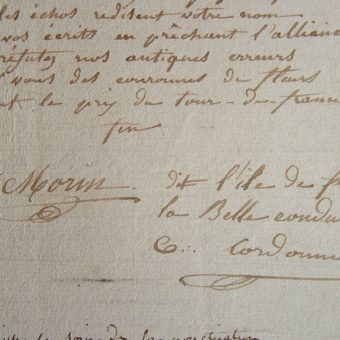 les échos redisent votre nom
vos écrits en prêchent l'allian
réfutez nos antiques erreurs
vous des couronnes de fleurs
t le prix du tour-de-franc
fin
Morin. dit l'ile de f
la Belle condu
C... Cordonn
le soin de la ponctuation